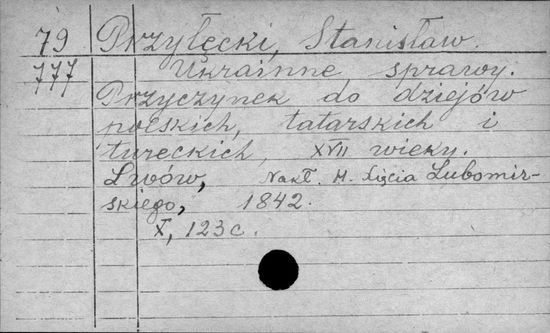 79 Przyłęcki, Stanisław.
777 Ukrainne sprawy.
Przyczynek do dziejów
polskich, tatarskich i
tureckich, XVII wieky.
Lwów, Nakł. H. Xięcia Lubomir-
skiego, 1842.
X, 123 c.